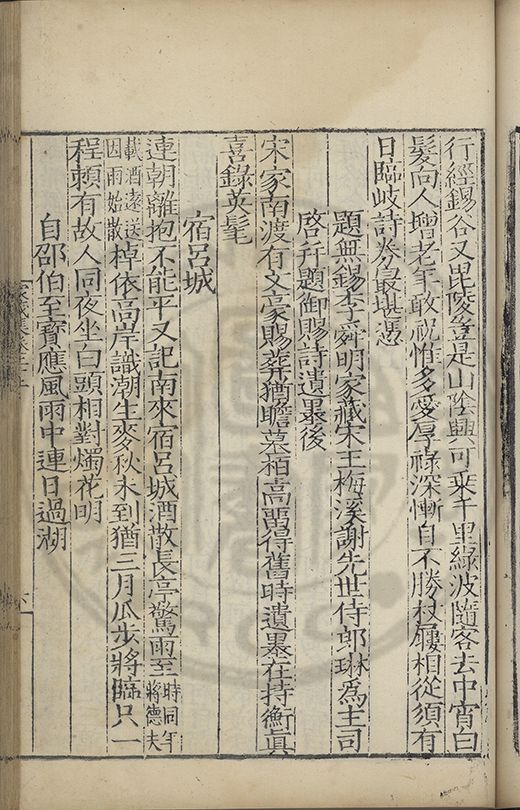 行經錫谷又毘陵豈是山陰興可乘千里綠波隨客去中宵白
髮向人增老年敢祝惟多愛厚祿深慚自不勝杖屨相從須有
日臨岐詩券最堪憑
題無錫李舜明家藏宋王梅溪謝先世侍郎琳為主司
啓并題御賜詩遺墨後
宋家南渡有文豪賜葬猶瞻墓栢高留得舊時遺墨在持衡真
喜錄英髦
宿呂城
連朝離抱不能平又記南來宿呂城酒散長亭驚雨至時同年蔣德夫
載酒遠送因雨始散棹依高岸識潮生麥秋未到猶三月瓜步將臨只一
程賴有故人同夜坐白頭相對燭花明
自邵伯至寶應風雨中連日過湖